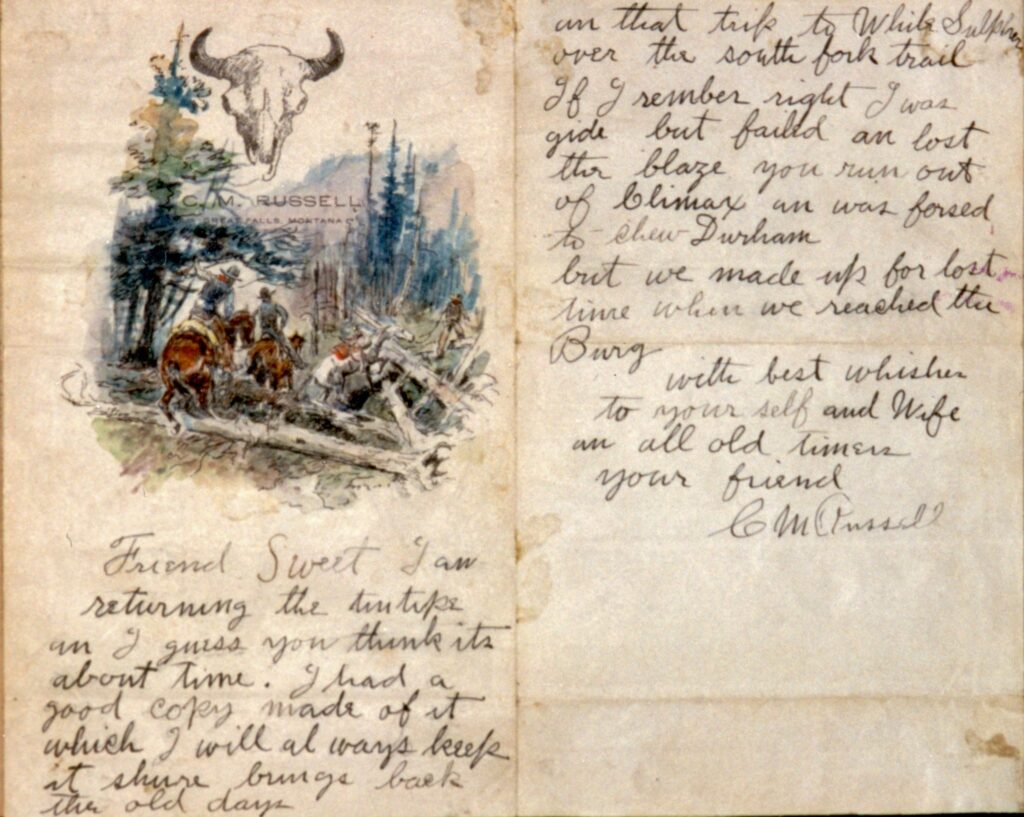 C. M. RUSSELL
GREAT FALLS, MONTANA
Friend Sweet I am
returning the tintipe
an I guess you think its
about time. I had a
good copy made of it
which I will al ways keep
it shure brings back
the old days
an that trip to White Sulphur
over the south fork trail
If I rember right I was
gide but failed an lost
the blaze you run out
of Climax an was forsed
to chew Durham
but we made up for lost
time when we reached the
Burg
with best whishes
to your self and Wife
an all old timers
your friend
C M Russell